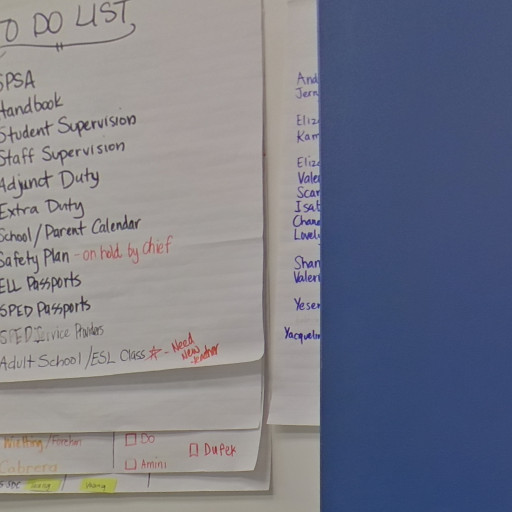 TO DO LIST
SPSA
Handbook
Student Supervision
Staff Supervision
Adjunct Duty
Extra Duty
School/Parent Calendar
Safety Plan - on hold by chief
ELL Passports
SPED Passports
SPED Service Providers
Adult School/ESL Class ☆ - Need New teacher
Do
Dupek
Cabrera
Amini
And
Jern
Eliz
Kam
Eliza
Vale
Scar
Isab
Chane
Lovel
Shan
Valeri
Yesen
Yacquelin